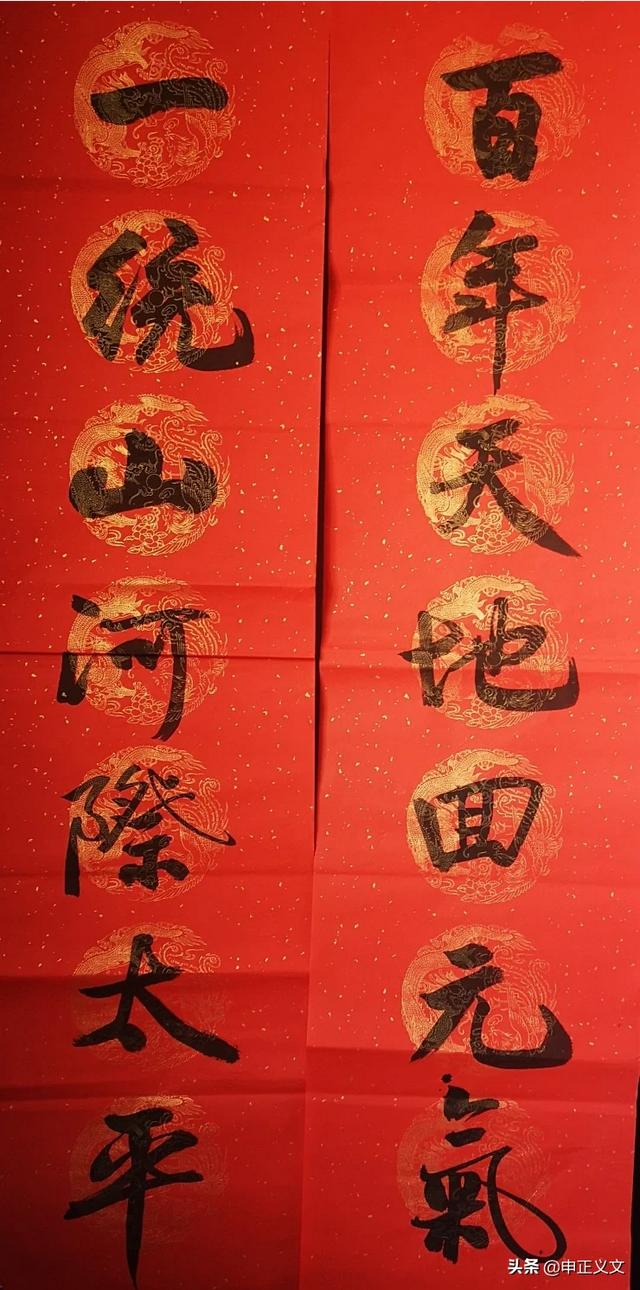 百年天地回元氣
一統山河際太平
头条 @申正义文